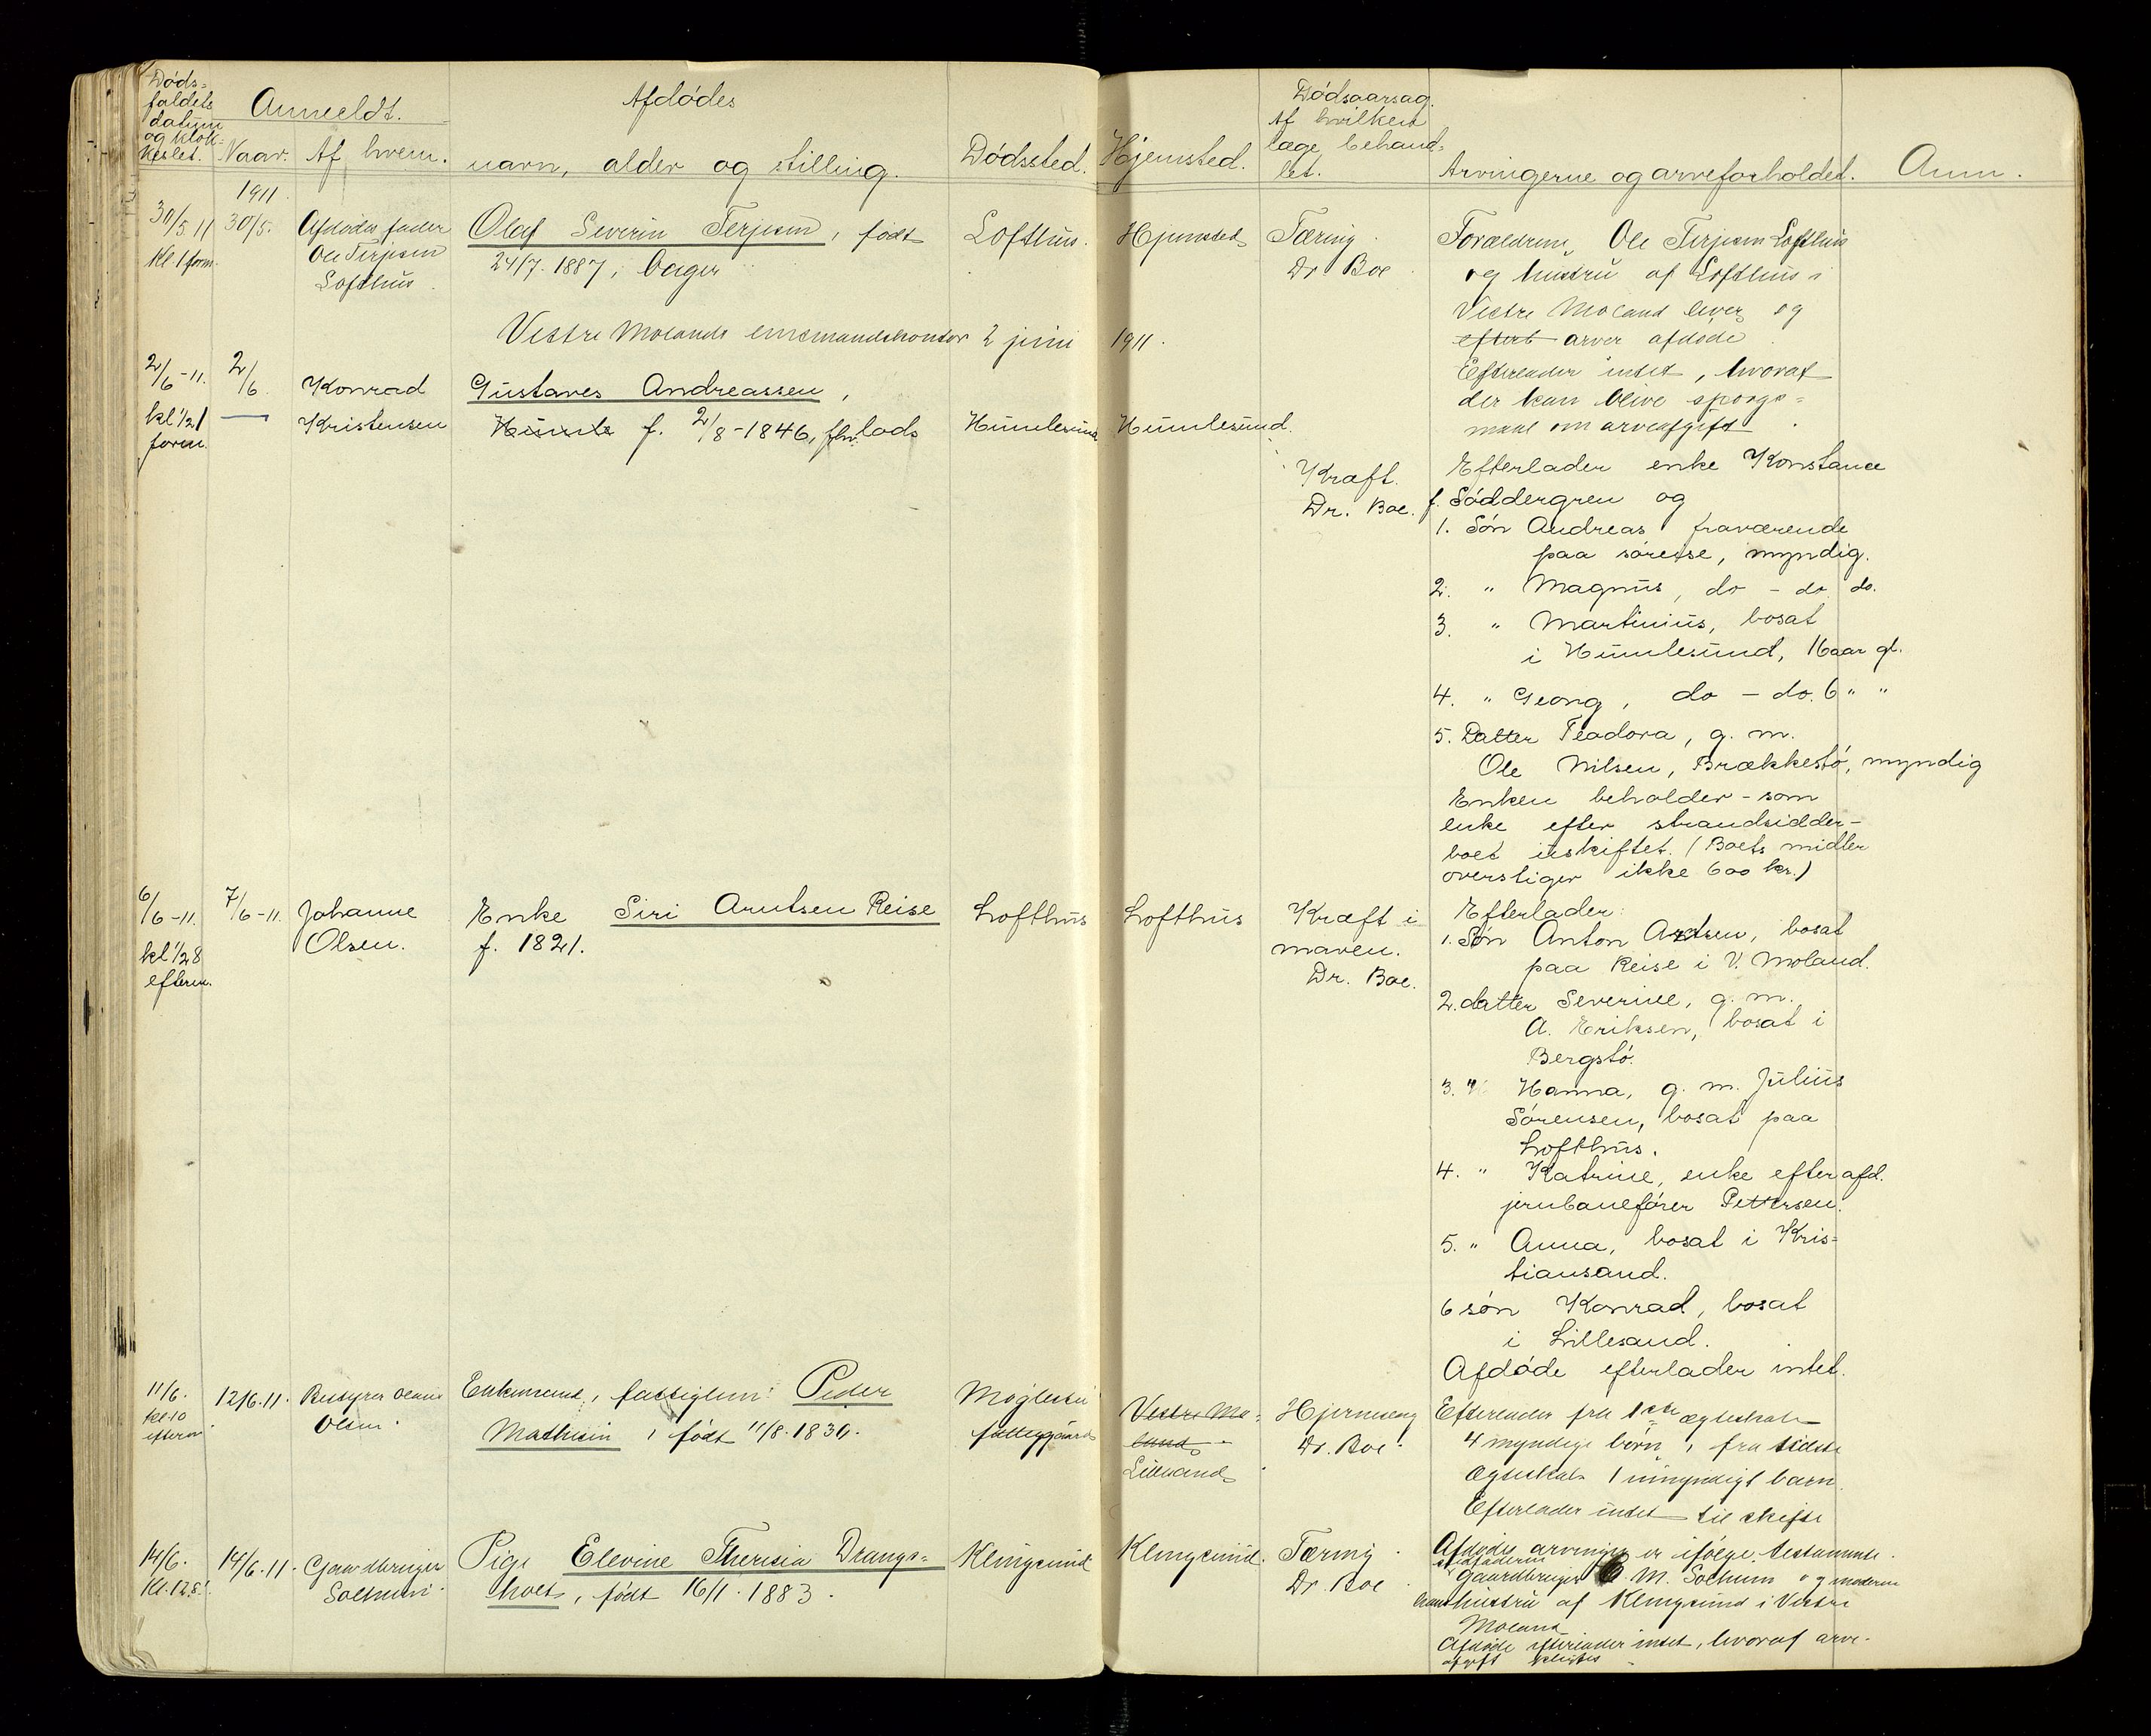 Døds-
faldets
datum
og klok-
keslet.
Anmeldt.
Naar.
Af hvem.
Afdødes
navn, alder og stilling.
Dødssted.
Hjemsted.
Dødsaarsag.
Af hvilken
læge behand-
let.
Arvingerne og arveforholdet.
Anm.
1911
30/5 11
Kl. 1 form.
30/5.
Afdødes fader
Ole Terjesen
Lofthus
Olaf Severin Terjesen, født
24/7. 1887, bager
Lofthus.
Hjemsted
Tæring.
Dr Boe
Forældrene, Ole Terjesen Lofthus
og hustru af Lofthus i
Vestre Moland lever og
efterl arver afdøde
Efterlader intet, hvoraf
der kan blive spørgs-
maal om arveafgift.
Vestre Molands lensmandskontor 2 juni 1911.
2/6-11.
kl 1/2 1
form.
2/6.
Konrad
Kristensen
Gustaves Andreassen,
Humle f. 2/8-1846, fhv. lods
Humlesund
Humlesund.
Kræft.
Dr. Boe.
Efterlader enke Konstance
f. Søddergren og
1. Søn Andreas, fraværende
paa søreise, myndig.
2. " Magnus, do - do. do.
3. " Martinius, bosat
i Humlesund, 16 aar gl.
4. " Georg, do - do. 6 " "
5. Datter Teadora, g. m.
Ole Nilsen, Brækkestø, myndig
Enken beholder - som
enke efter strandsidder-
boet uskiftet. (Boets midler
overstiger ikke 600 kr.)
6/6-11.
kl 1/2 8
efterm.
7/6-11.
Johanne
Olsen.
Enke Siri Arntsen Reise
f. 1821.
Lofthus
Lofthus
Kræft i
maven.
Dr. Boe.
Efterlader:
1. Søn Anton Arntsen, bosat
paa Reise i V. Moland.
2. datter Severine, g. m.
A. Eriksen, bosat i
Bergstø.
3. " Hanna, g. m. Julius
Sørensen, bosat paa
Lofthus.
4. " Katrine, enke efter afd.
jernbanefører Pettersen.
5. " Anna, bosat i Kris-
tiansand.
6 søn Konrad, bosat
i Lillesand.
Afdøde efterlader intet.
11/6.
kl 10
efterm
12/6.11.
Bestyrer
Olsen.
Enkemand, fattiglem: Peder
Mathisen, født 11/8. 1830.
Møglestu
fattiggaard
Vestre Mo-
land
Lillesand
Hjerneslag
Dr. Boe.
Efterlader fra 1ste ægteskab
4 myndige børn, fra sidste
ægteskab 1 umyndigt barn.
Efterlader intet til skifte
14/6.
Kl. 12
14/6.11.
Gaardbruger
Solheim
Pige Elevine Theresia Drangs-
holt, født 16/1. 1883.
Klingsund
Klingsund.
Tæring.
Dr. Boe
Afdødes arvinger er ifølge testamente
stedfaderen
Gaardbruger M. Solheim og moderen
hans hustru af Klingsund i Vestre
Moland
Afdøde efterlader intet, hvoraf arve-
afgift